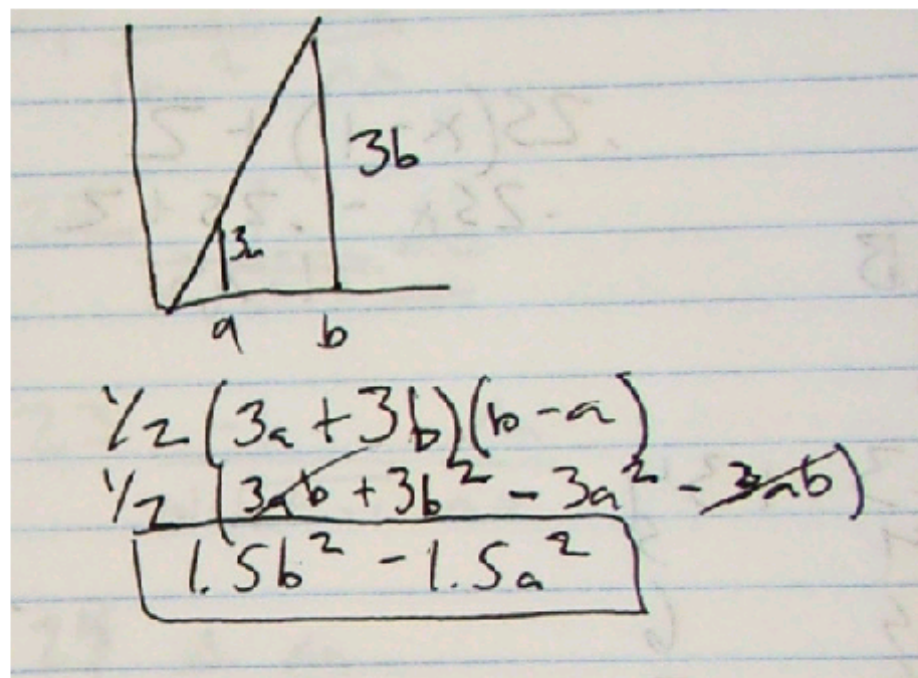 3b
3a
a b
1/2 (3a + 3b)(b - a)
1/2 (3ab + 3b² - 3a² - 3ab)
1.5b² - 1.5a²